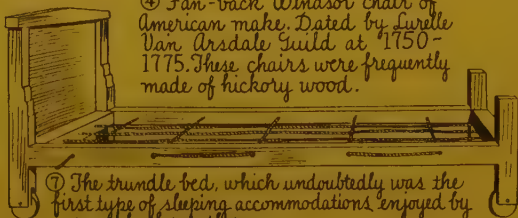 ④ Fan-back Windsor chair of
American make. Dated by Lurelle
Van Arsdale Guild at "1750-
1775. These chairs were frequently
made of hickory wood.
⑦ The trundle bed, which undoubtedly was the
first type of sleeping accommodations enjoyed by